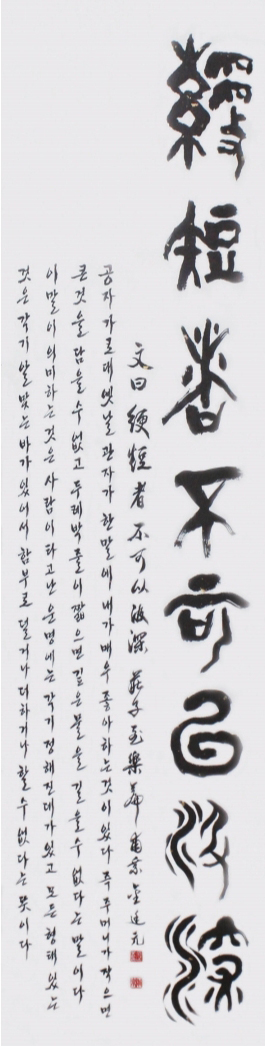 綆短者不可以汲深
文曰 綆短者不可以汲深 莊子至樂篇
공자가로데 옛날 관자가 한말에 내가매우 좋아하는것이 있다 즉 주머니가 작으면
큰것을 담을수 없고 두레박줄이 짧으면 깊은 물을 길을수 없다는 말이다
이말이 의미하는것은 사람이 타고난 운명에는 각기 정해진데가 있고 모든 형태 있는
것은 각기 알맞는 바가 있어서 함부로 덜거나 더하거나 할 수 없다는 뜻이다